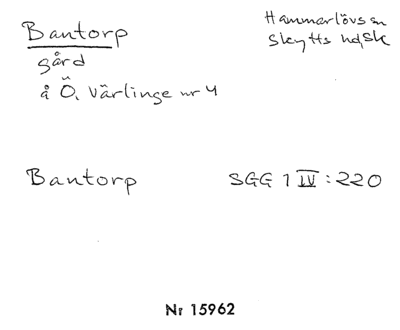 Bantorp
Hammarlövs sn
Skytts hd, Sk
gård
å Ö. Värlinge nr 4
Bantorp SGG 1 IV : 220
Nr 15962